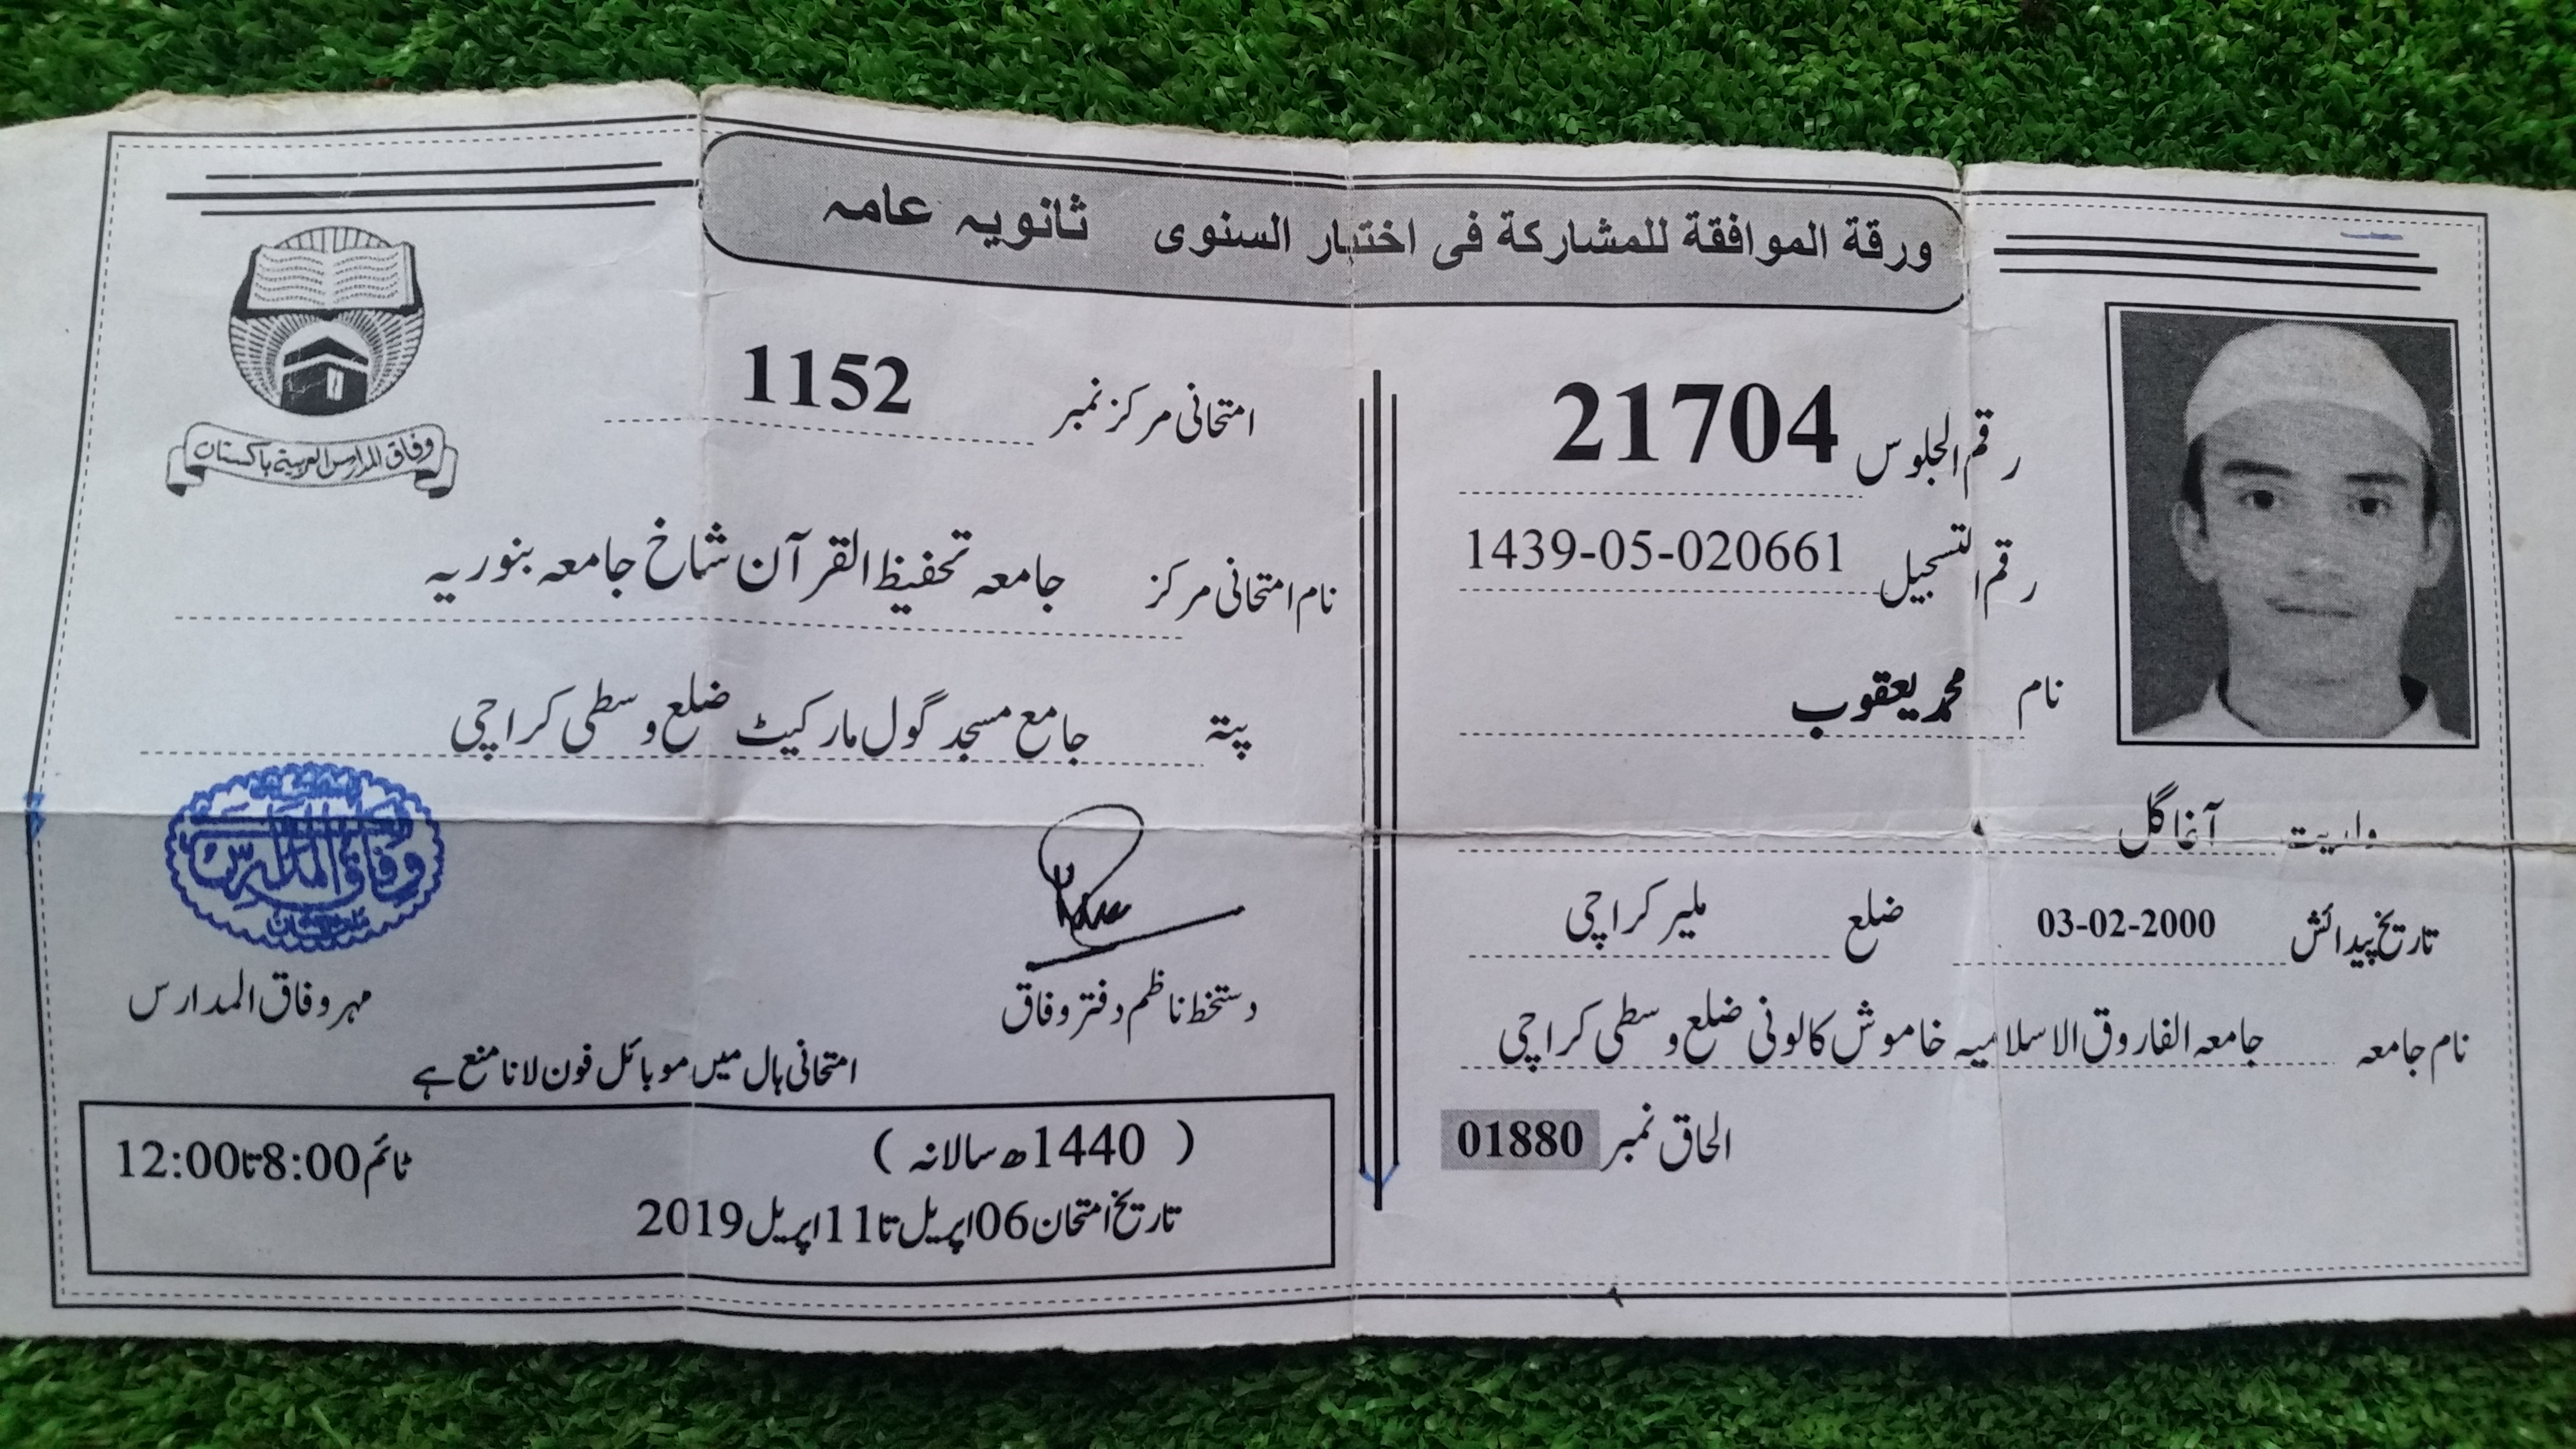 ورقة الموافقة للمشاركة فى اختبار السنوى ثانویہ عامہ
وفاق المدارس العربیۃ پاکستان
رقم الجلوس 21704
رقم التسجیل 1439-05-020661
نام محمد یعقوب
ولدیت آغا گل
تاریخ پیدائش 03-02-2000 ضلع ملیر کراچی
نام جامعہ جامعہ الفاروق الاسلامیہ خاموش کالونی ضلع وسطی کراچی
الحاق نمبر 01880
امتحانی مرکز نمبر 1152
نام امتحانی مرکز جامعہ تحفیظ القرآن شاخ جامعہ بنوریہ
پتہ جامع مسجد گول مارکیٹ ضلع وسطی کراچی
وفاق المدارس
دستخط ناظم دفتر وفاق
مہر وفاق المدارس
امتحانی ہال میں موبائل فون لانا منع ہے
( 1440ھ سالانہ )
ٹائم 8:00 تا 12:00
تاریخ امتحان 06 اپریل تا 11 اپریل 2019